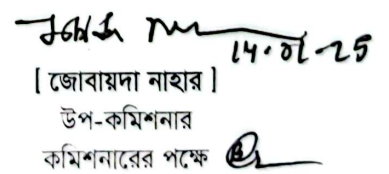 14.01.25
[ জোবায়দা নাহার ]
উপ-কমিশনার
কমিশনারের পক্ষে